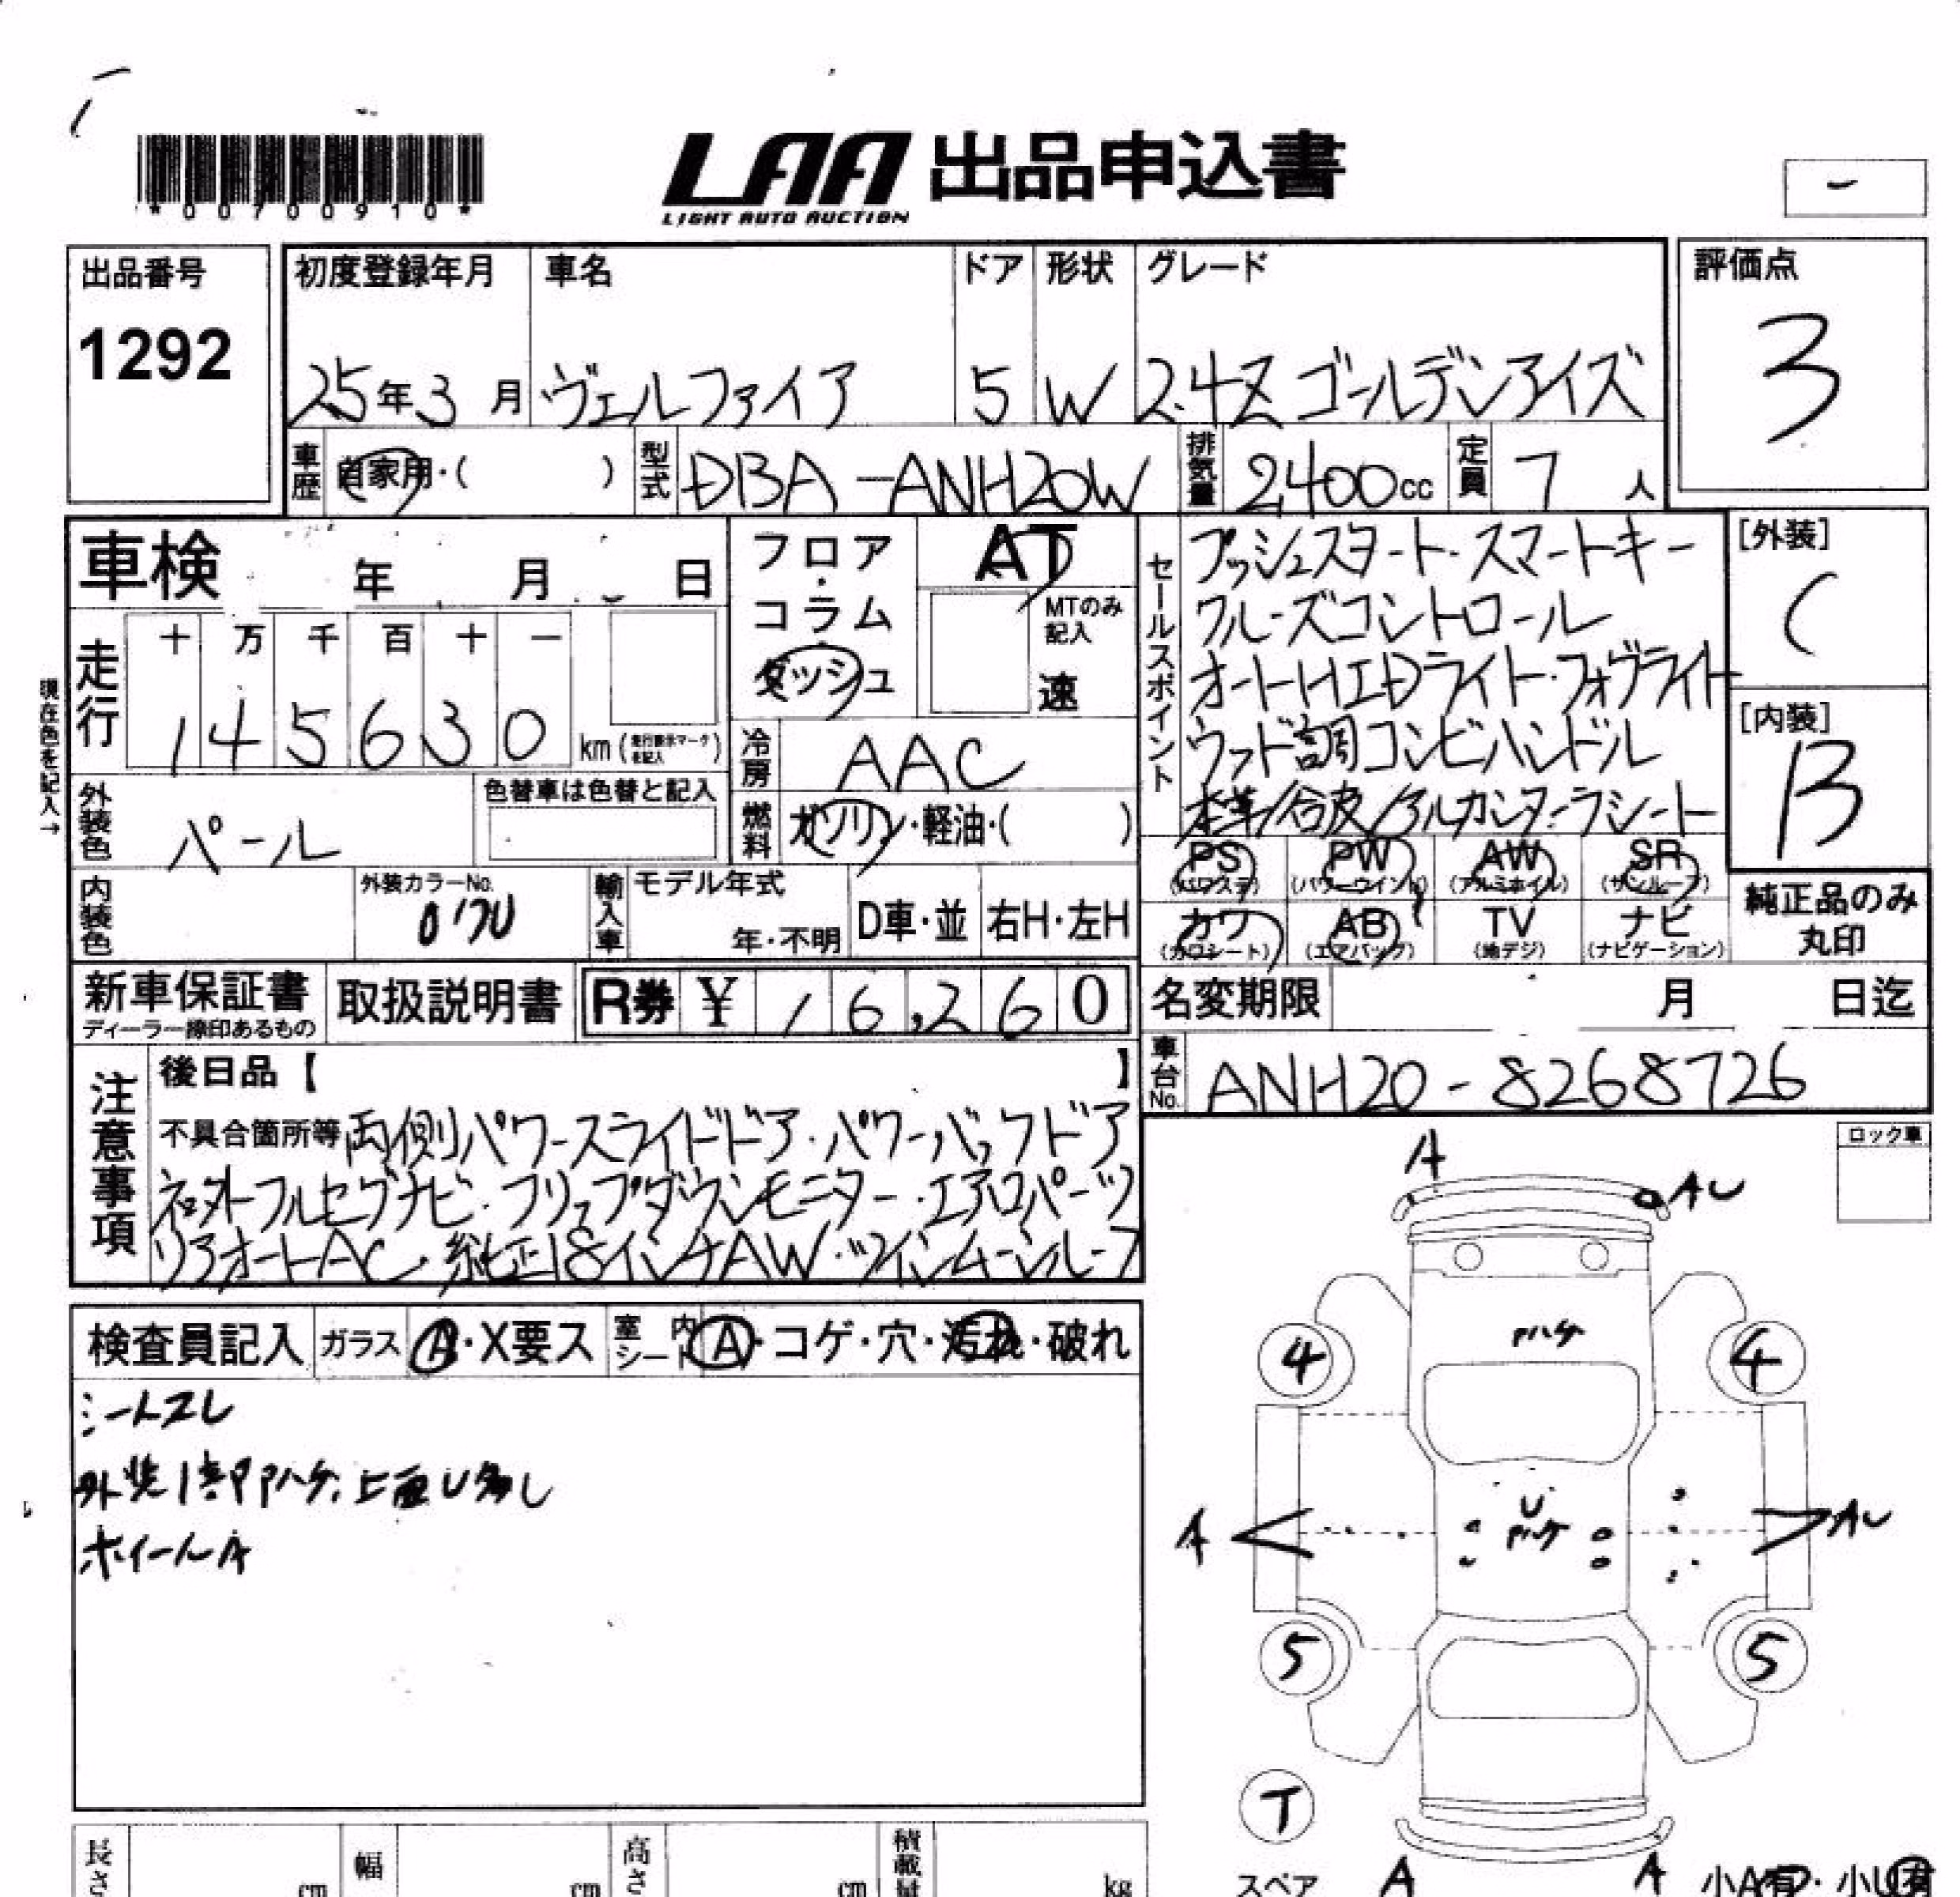 *00700910*
LAA 出品申込書
LIGHT AUTO AUCTION
-
出品番号
1292
初度登録年月 車名 ドア 形状 グレード
25年3月 ヴェルファイア 5 W 2.4Z ゴールデンアイズ
評価点
3
車歴 自家用・( ) 型式 DBA-ANH20W 排気量 2,400cc 定員 7人
車検 年 月 日
フロア・コラム ダッシュ
AT
MTのみ記入
速
セールスポイント
プッシュスタート・スマートキー
クルーズコントロール
オートHIDライト・フォグライト
ウッド調コンビハンドル
本革/合皮/アルカンターラシート
[外装]
C
[内装]
B
現在色を記入→
走行 十 万 千 百 十 一
1 4 5 6 3 0 km (走行表示マークを記入)
冷房 AAC
外装色 パール 色替車は色替と記入
燃料 ガソリン・軽油・( )
内装色 外装カラーNo. 070
輸入車 モデル年式 年・不明 D車・並 右H・左H
PS (パワステ) PW (パワーウインド) AW (アルミホイル) SR (サンルーフ)
カワ (カワシート) AB (エアバッグ) TV (地デジ) ナビ (ナビゲーション)
純正品のみ丸印
新車保証書 ディーラー捺印あるもの 取扱説明書 R券 ¥ 16,260
名変期限 月 日迄
車台No. ANH20-8268726
注意事項
後日品【 】
不具合箇所等 両側パワースライドドア・パワーバックドア
社外フルセグナビ・フリップダウンモニター・エアロパーツ
リアオートAC・純正18インチAW・ツインムーンルーフ
ロック車
検査員記入 ガラス A・X要ス 室内シート A・コゲ・穴・汚れ・破れ
シートスレ
外装1部Pハゲ、上面U多し
ホイールA
A
AU
Pハゲ
4
4
A
U
Pハゲ
AU
5
5
T
スペア
A
A
小A有・小U有
長さ cm 幅 cm 高さ cm 積載量 kg